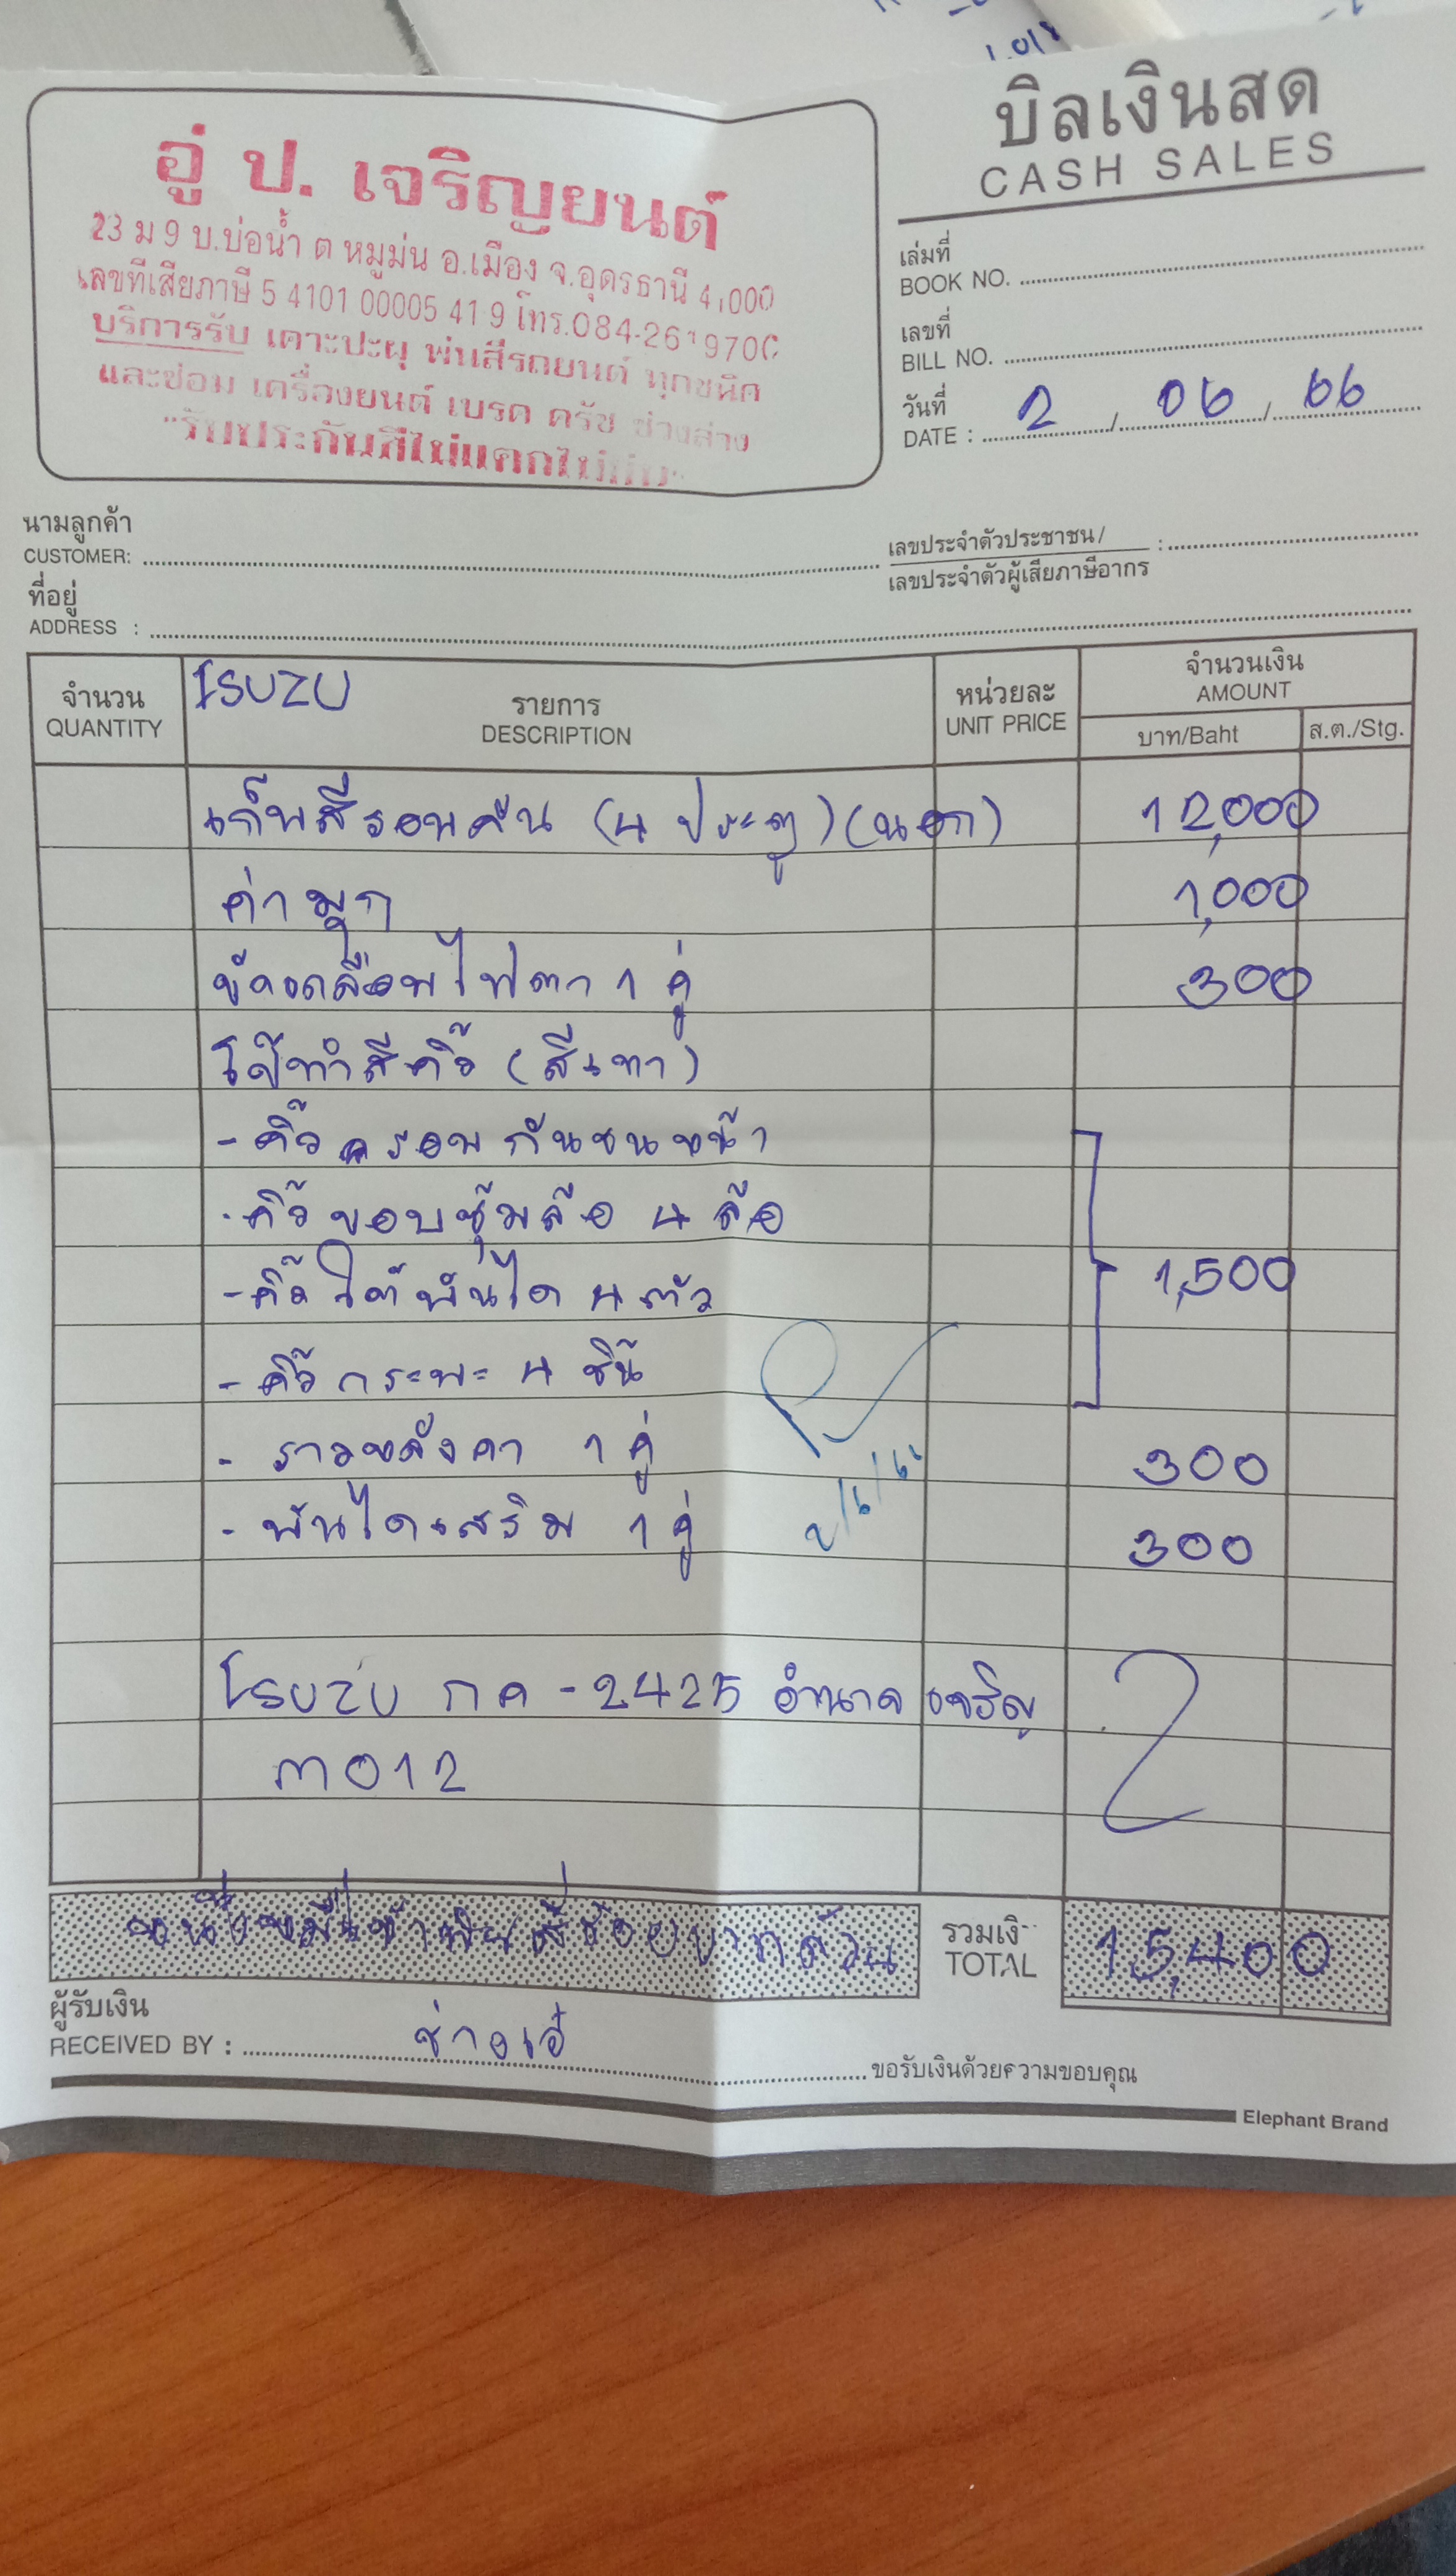 บิลเงินสด
CASH SALES
อู่ ป. เจริญยนต์
23 ม 9 บ.บ่อน้ำ ต หมูม่น อ.เมือง จ.อุดรธานี 41000
เลขที่เสียภาษี 5 4101 00005 41 9 โทร.084-261970
บริการรับ เคาะปะผุ พ่นสีรถยนต์ ทุกชนิด
และซ่อม เครื่องยนต์ เบรค ครัช ช่วงล่าง
"รับประกันสีไม่แตกไม่
เล่มที่
BOOK NO.
เลขที่
BILL NO.
วันที่
DATE : 2 / 06 / 66
นามลูกค้า
CUSTOMER:
เลขประจำตัวประชาชน/
เลขประจำตัวผู้เสียภาษีอากร :
ที่อยู่
ADDRESS :
ISUZU
จำนวน รายการ หน่วยละ จำนวนเงิน
QUANTITY DESCRIPTION UNIT PRICE AMOUNT
บาท/Baht ส.ต./Stg.
เก็บสีรอบคัน (4 ประตู) (นอก) 12,000
ค่ามุก 1,000
ขัดเคลือบไฟตา 1 คู่ 300
โป๊ทำสีคิ้ว (สีเทา)
- คิ้วครอบกันชนหน้า
- คิ้วขอบซุ้มล้อ 4 ล้อ
- คิ้วใต้บันได 4 ตัว 1,500
- คิ้วกระบะ 4 ชิ้น
- ราวหลังคา 1 คู่ 300
- บันไดเสริม 1 คู่ 300
2/6/66
ISUZU กค - 2425 อำนาจเจริญ
M012
หนึ่งหมื่นห้าพันสี่ร้อยบาทถ้วน
รวมเงิ
TOTAL 15,400
ผู้รับเงิน
RECEIVED BY : ช่างเอ๋
ขอรับเงินด้วยความขอบคุณ
Elephant Brand